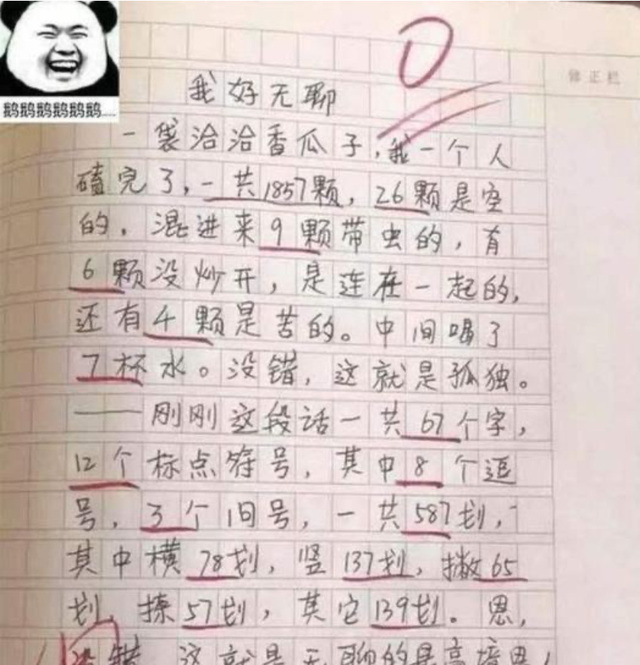 鹅鹅鹅鹅鹅鹅.....
0
修正栏
我好无聊
一袋洽洽香瓜子，我一个人
磕完了，一共1857颗，26颗是空
的，混进来9颗带虫的，有
6颗没炒开，是连在一起的，
还有4颗是苦的。中间喝了
7杯水。没错，这就是孤独。
——刚刚这段话一共67个字，
12个标点符号，其中8个逗
号，3个问号，一共587划，
其中横78划，竖137划，撇65
划，捺57划，其它139划。恩，
没错，这就是无聊的最高境界！